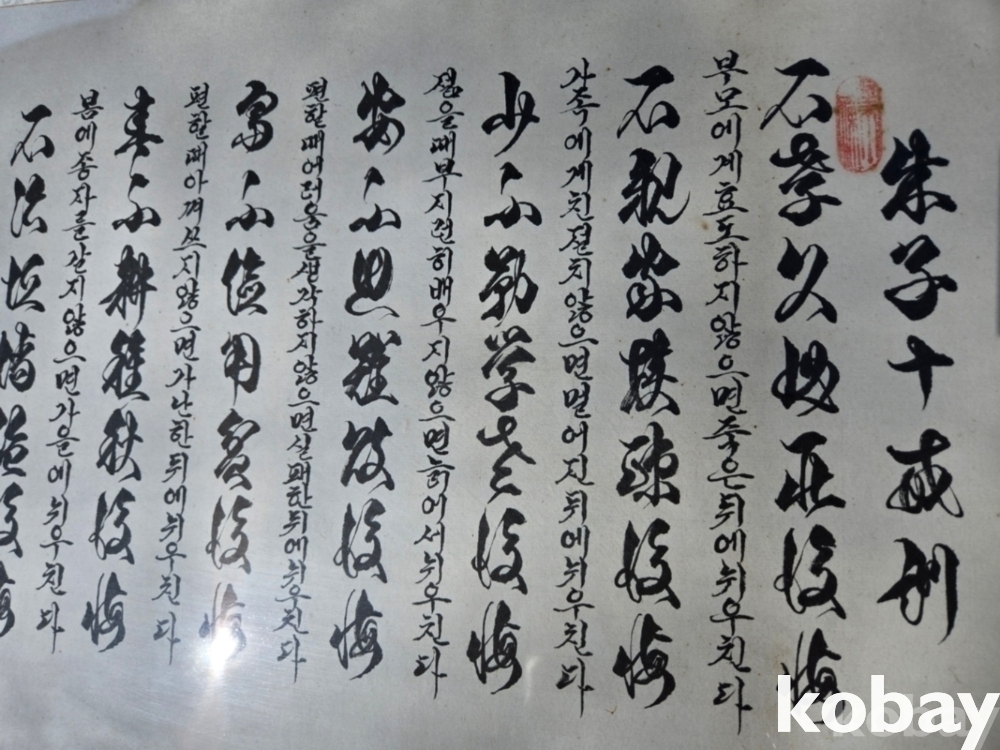 朱子十戒訓
不孝父母死後悔
부모에게효도하지않으면죽은뒤에뉘우친다
不親家族疎後悔
가족에게친절치않으면멀어진뒤에뉘우친다
少不勤学老後悔
젊을때부지런히배우지않으면늙어서뉘우친다
安不思難敗後悔
편한때어려움을생각하지않으면실패한뒤에뉘우친다
富不儉用貧後悔
편한때아껴쓰지않으면가난한뒤에뉘우친다
春不耕種秋後悔
봄에종자를갈지않으면가을에뉘우친다
不治垣墻盜後悔
kobay